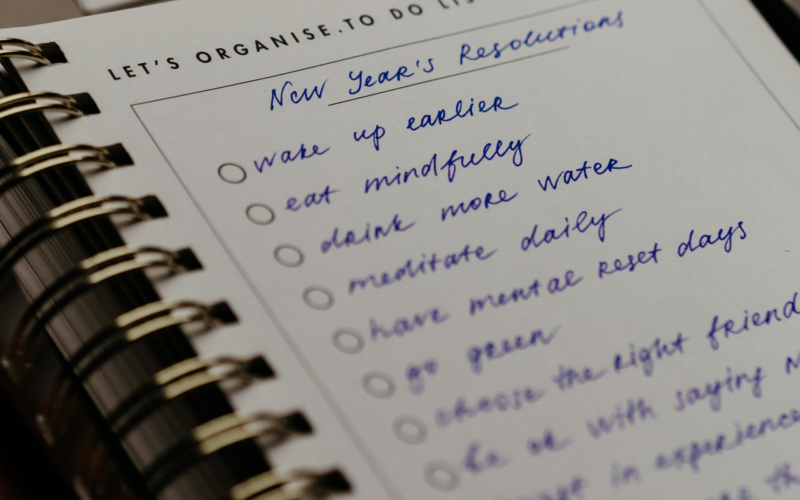 LET'S ORGANISE.TO DO LIS
New Year's Resolutions
wake up earlier
eat mindfully
drink more water
meditate daily
have mental reset days
go green
choose the right friend
be ok with saying
in experience